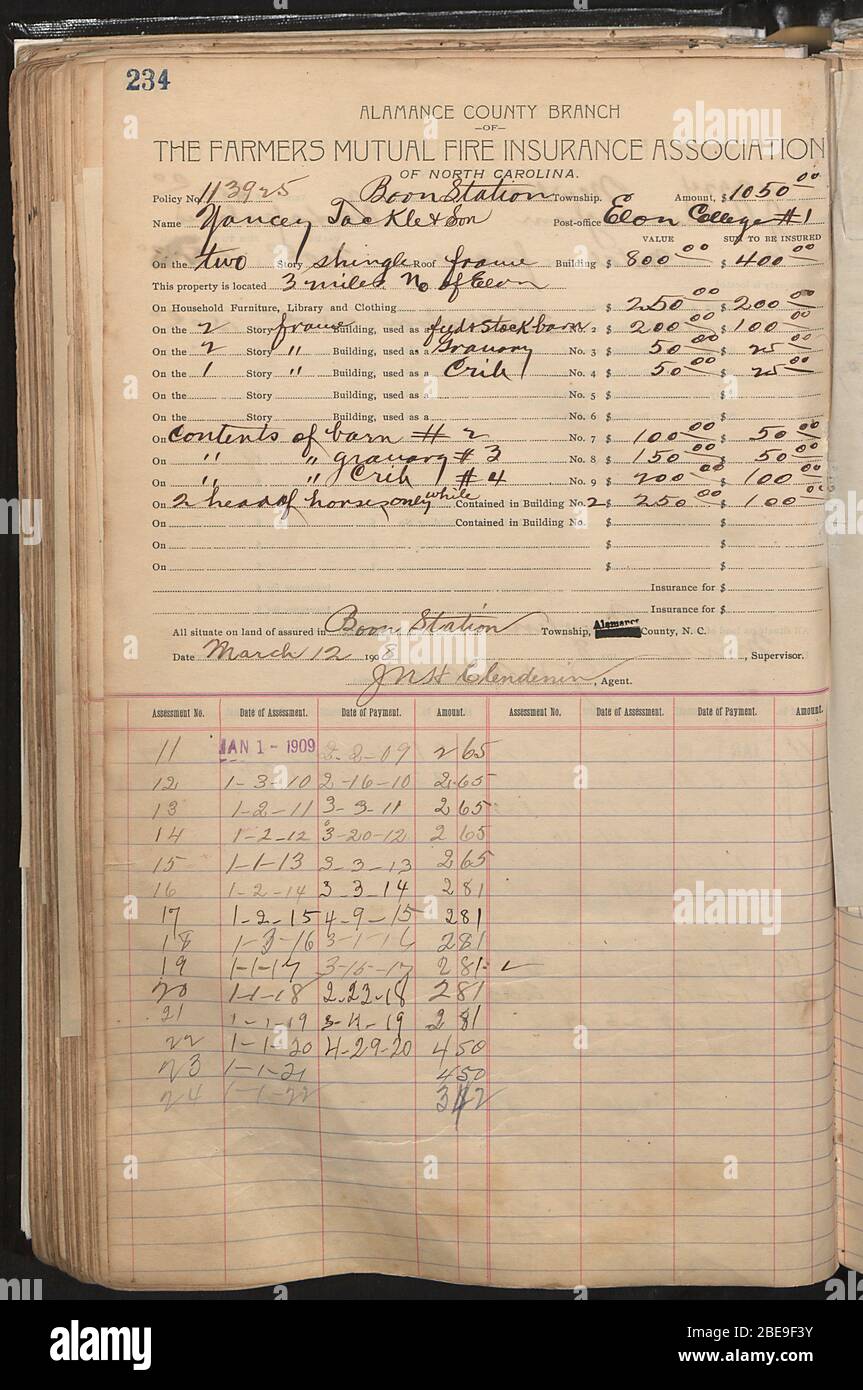 234
ALAMANCE COUNTY BRANCH
—OF—
THE FARMERS MUTUAL FIRE INSURANCE ASSOCIATION
OF NORTH CAROLINA.
Policy No. 113925 Boon Station Township. Amount, $1050 00
Name Yancey Tackle & Son Post-office Elon College #1
VALUE SUM TO BE INSURED
On the two Story shingle Roof frame Building $ 800 00 $ 400 00
This property is located 3 miles N of Elon
On Household Furniture, Library and Clothing $ 250 00 $ 200 00
On the 2 Story frame Building, used as feed & Stock barn 2 $ 200 00 $ 100 00
On the 2 Story " Building, used as a Granary No. 3 $ 50 00 $ 25 00
On the 1 Story " Building, used as a Crib No. 4 $ 50 00 $ 25 00
On the Story Building, used as a No. 5 $ $
On the Story Building, used as a No. 6 $ $
On Contents of barn # 2 No. 7 $ 100 00 $ 50 00
On " " granary # 3 No. 8 $ 150 00 $ 50 00
On " " Crib # 4 No. 9 $ 200 00 $ 100 00
On 2 head of horses only while Contained in Building No. 2 $ 250 00 $ 100 00
On Contained in Building No. $ $
On $ $
On $ $
Insurance for $
Insurance for $
All situate on land of assured in Boon Station Township, Alamance County, N. C.
Date March 12 1908 , Supervisor.
JNH Clendenin, Agent.
Assessment No. Date of Assessment. Date of Payment. Amount. Assessment No. Date of Assessment. Date of Payment. Amount.
11 JAN 1 - 1909 2-2-09 2 65
12 1-3-10 2-16-10 2 65
13 1-2-11 3-3-11 2 65
14 1-2-12 3-20-12 2 65
15 1-1-13 3-3-13 2 65
16 1-2-14 3-3-14 2 81
17 1-2-15 4-9-15 2 81
18 1-3-16 3-1-16 2 81
19 1-1-17 3-15-17 2 81
20 1-1-18 2-22-18 2 81
21 1-1-19 3-4-19 2 81
22 1-1-20 4-29-20 4 50
23 1-1-21 4 50
24 1-1-22 3 42
alamy
Image ID: 2BE9F3Y
www.alamy.com